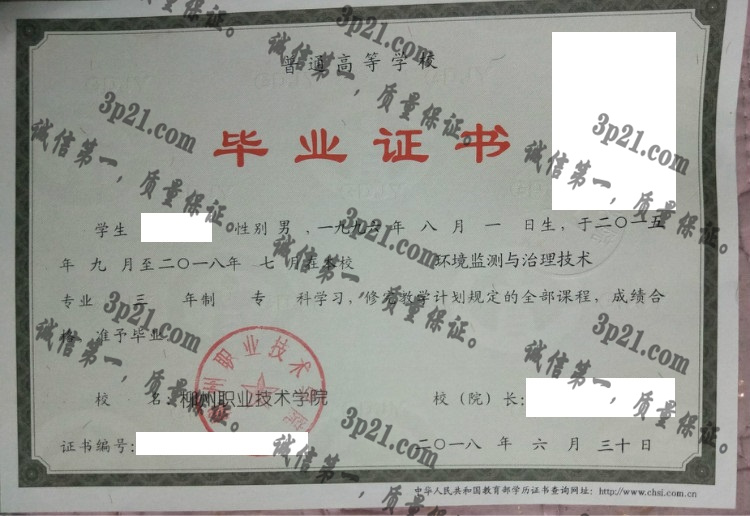 普通高等学校
毕业证书
学生 性别 男 ,一九九六年 八 月 一 日生,于二〇一五
年 九 月至二〇一八年 七 月在本校 环境监测与治理技术
专业 三 年制 专 科学习,修完教学计划规定的全部课程,成绩合
格,准予毕业
校 名:柳州职业技术学院 校(院)长:
证书编号: 二〇一八 年 六 月 三十日
中华人民共和国教育部学历证书查询网址:http://www.chsi.com.cn
3p21.com
诚信第一,质量保证。
3p21.com
诚信第一,质量保证。
3p21.com
诚信第一,质量保证。
3p21.com
诚信第一,质量保证。
3p21.com
诚信第一,质量保证。
3p21.com
诚信第一,质量